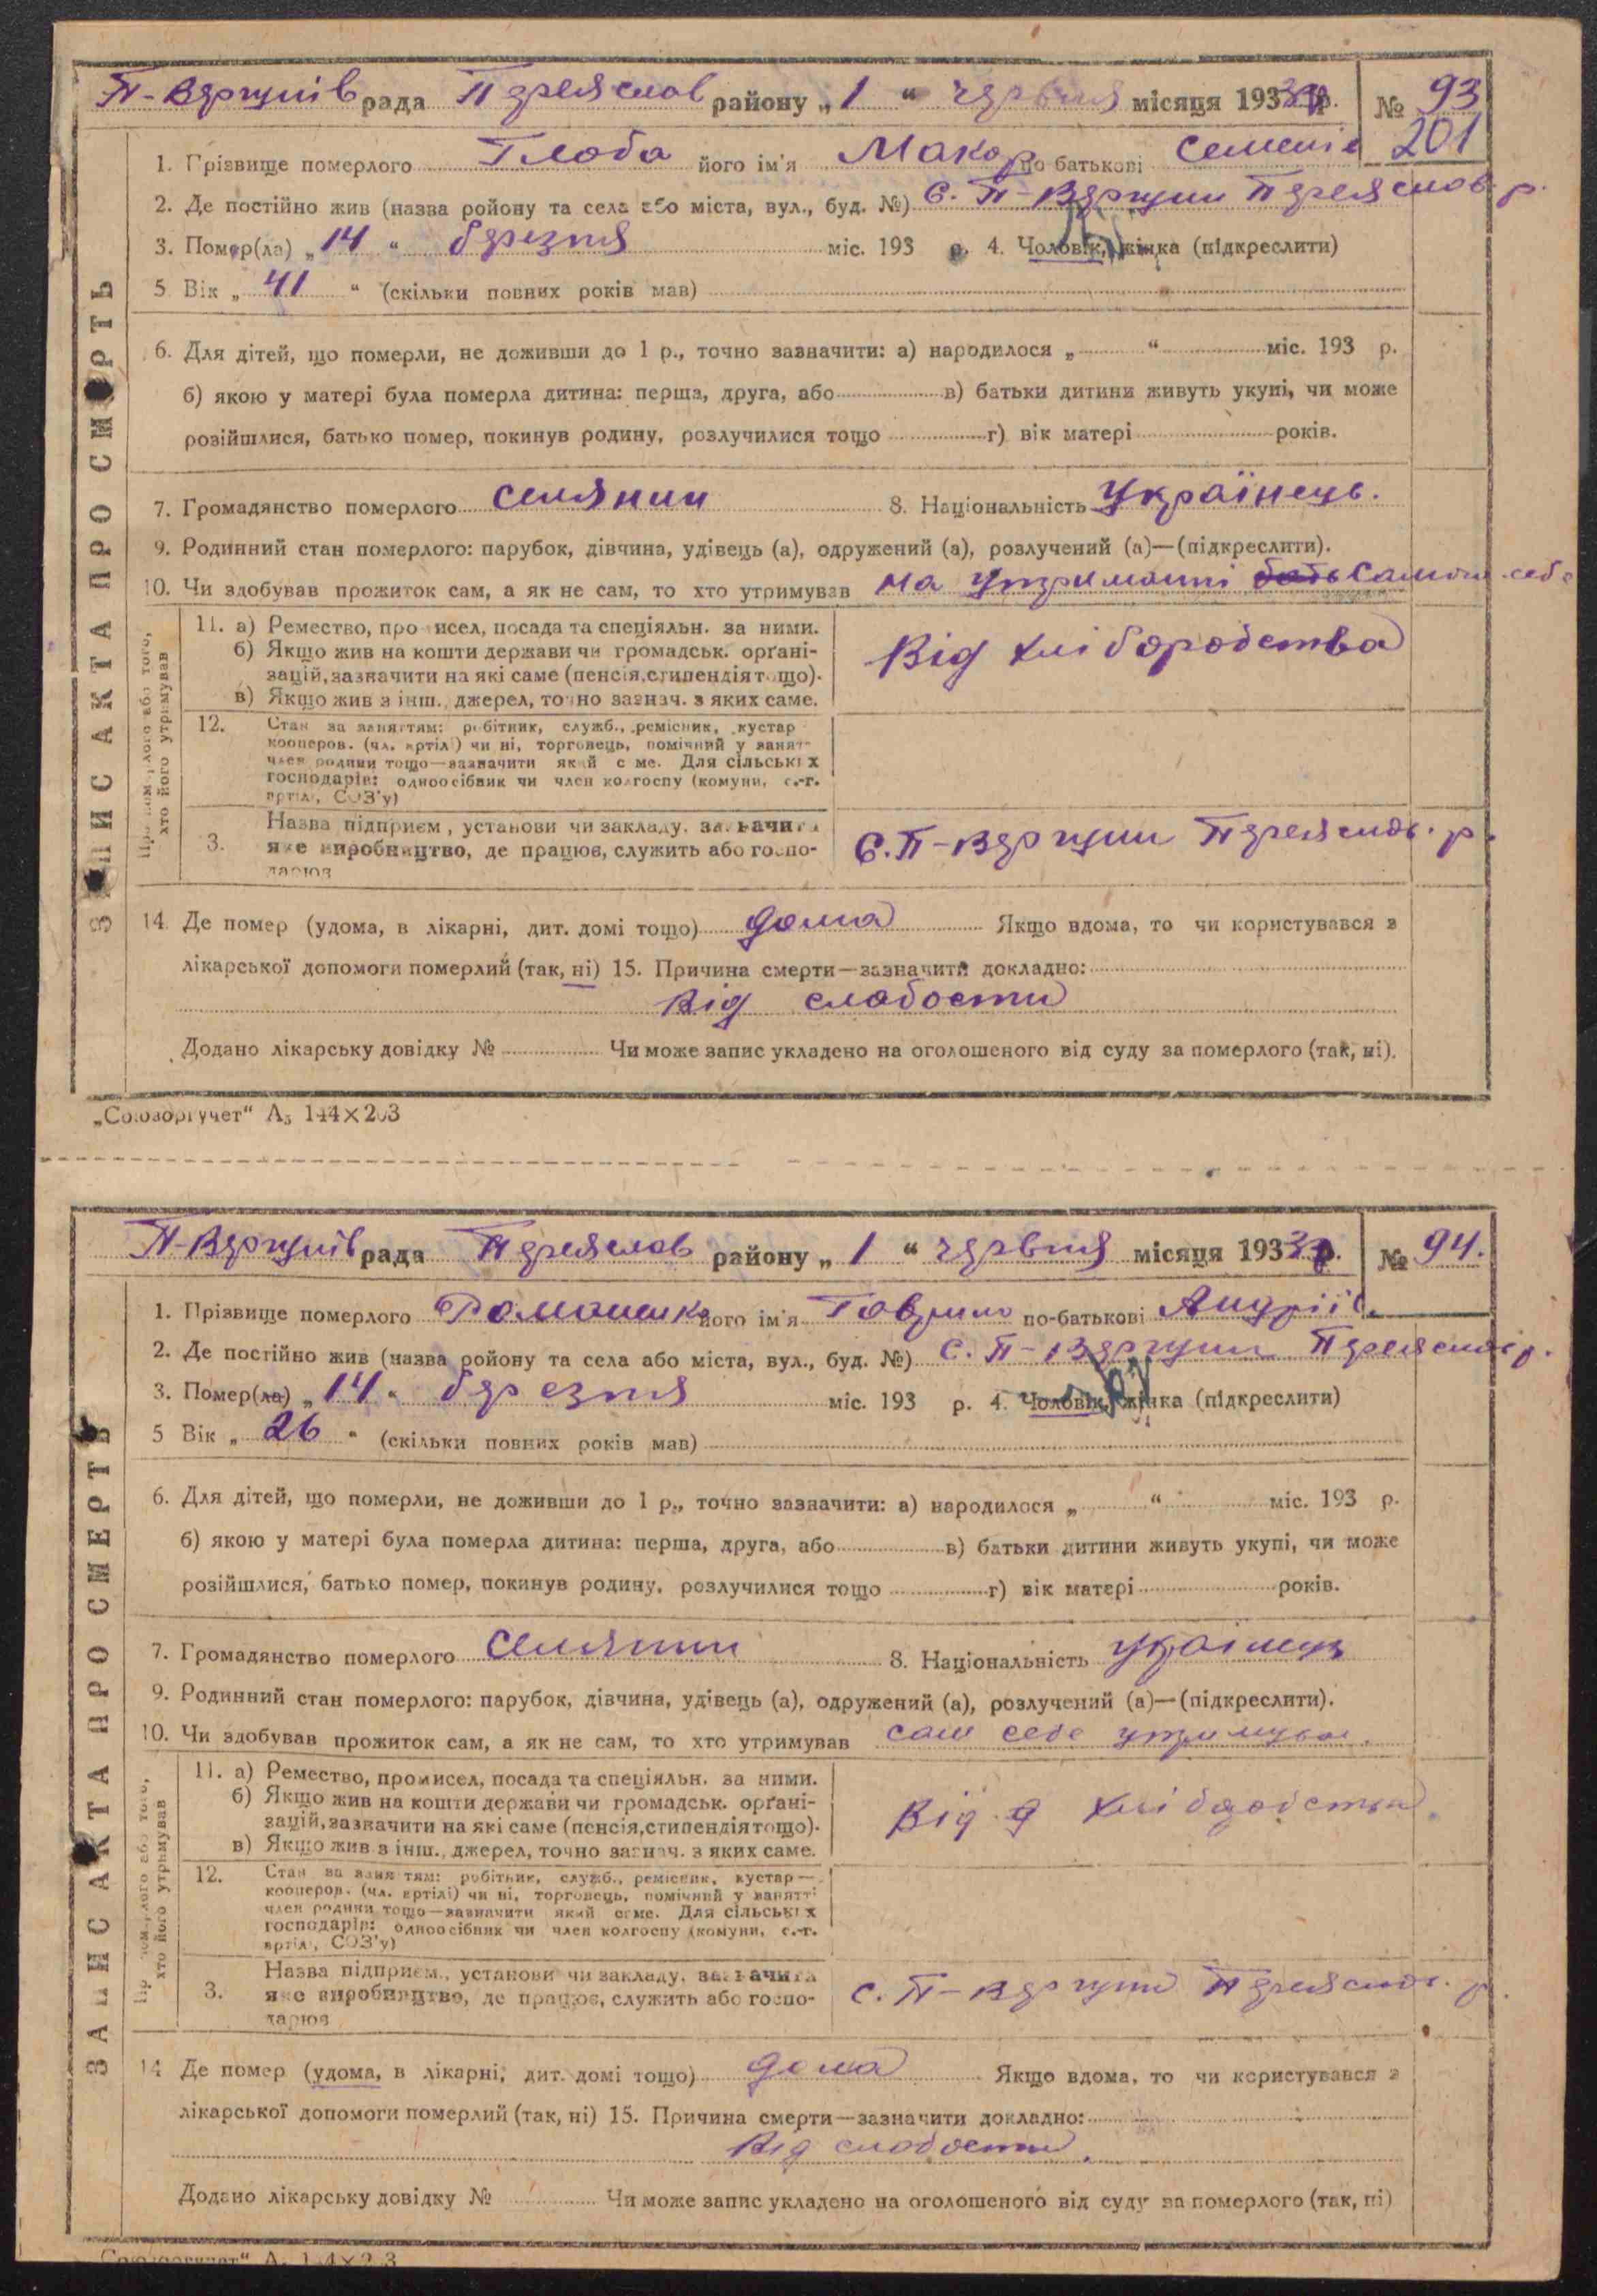 П-Вергунів рада Переяслав району „1“ червня місяця 1933 р. № 93
201
1. Прізвище померлого Глоба його ім'я Макар по батькові Семенів
2. Де постійно жив (назва ройону та села або міста, вул., буд. №) С. П-Вергуни Переяслов. р.
3. Помер(ла) „14“ березня міс. 193 р. 4. Чоловік, жінка (підкреслити)
5 Вік „41“ (скільки повних років мав)
6. Для дітей, що померли, не доживши до 1 р., точно зазначити: а) народилося „ “ міс. 193 р.
б) якою у матері була померла дитина: перша, друга, або в) батьки дитини живуть укупі, чи може
розійшлися, батько помер, покинув родину, розлучилися тощо г) вік матері років.
7. Громадянство померлого селянин 8. Національність Українець.
9. Родинний стан померлого: парубок, дівчина, удівець (а), одружений (а), розлучений (а)—(підкреслити).
10. Чи здобував прожиток сам, а як не сам, то хто утримував на утриманні самого себе
11. а) Ремество, промисел, посада та спеціяльн. за ними.
б) Якщо жив на кошти держави чи громадськ. орґані-
зацій, зазначити на які саме (пенсія, стипендія тощо).
в) Якщо жив з інш., джерел, точно зазнач. з яких саме.
Від хліборобства
12. Стан за заняттям: робітник, служб., ремісник, кустар
кооперов. (чл. артілі) чи ні, торговець, помічний у занят-
член родини тощо—зазначити який саме. Для сільських
господарів: одноосібник чи член колгоспу (комуни, с.-г.
артілі, СОЗ'у)
3. Назва підприєм., установи чи закладу, зазначити
яке виробництво, де працює, служить або госпо-
дарює
С. П-Вергуни Переяслов. р.
14. Де помер (удома, в лікарні, дит. домі тощо) дома Якщо вдома, то чи користувався з
лікарської допомоги померлий (так, ні) 15. Причина смерти—зазначити докладно:
Від слабости
Додано лікарську довідку № Чи може запис укладено на оголошеного від суду за померлого (так, ні).
ЗАПИС АКТА ПРО СМЕРТЬ
Про померлого або того,
хто його утримував
„Союзоргучет“ А₅ 144×203
П-Вергунів рада Переяслав району „1“ червня місяця 1933 р. № 94.
1. Прізвище померлого Романенко його ім'я Гаврило по-батькові Андріїв
2. Де постійно жив (назва ройону та села або міста, вул., буд. №) С. П-Вергуни Переяслов р.
3. Помер(ла) „14“ березня міс. 193 р. 4. Чоловік, жінка (підкреслити)
5 Вік „26“ (скільки повних років мав)
6. Для дітей, що померли, не доживши до 1 р., точно зазначити: а) народилося „ “ міс. 193 р.
б) якою у матері була померла дитина: перша, друга, або в) батьки дитини живуть укупі, чи може
розійшлися, батько помер, покинув родину, розлучилися тощо г) вік матері років.
7. Громадянство померлого Селянин 8. Національність українец
9. Родинний стан померлого: парубок, дівчина, удівець (а), одружений (а), розлучений (а)—(підкреслити).
10. Чи здобував прожиток сам, а як не сам, то хто утримував сам себе утримував.
11. а) Ремество, промисел, посада та спеціяльн. за ними.
б) Якщо жив на кошти держави чи громадськ. орґані-
зацій, зазначити на які саме (пенсія, стипендія тощо).
в) Якщо жив з інш., джерел, точно зазнач. з яких саме.
Від хліборобства.
12. Стан за заняттям: робітник, служб., ремісник, кустар—
кооперов. (чл. артілі) чи ні, торговець, помічний у занятті
член родини тощо—зазначити який саме. Для сільських
господарів: одноосібник чи член колгоспу (комуни, с.-г.
артілі, СОЗ'у)
3. Назва підприєм., установи чи закладу, зазначити
яке виробництво, де працює, служить або госпо-
дарює
с. П-Вергуни Переяслов. р.
14 Де помер (удома, в лікарні, дит. домі тощо) дома Якщо вдома, то чи користувався з
лікарської допомоги померлий (так, ні) 15. Причина смерти—зазначити докладно:
Від слабости.
Додано лікарську довідку № Чи може запис укладено на оголошеного від суду за померлого (так, ні)
ЗАПИС АКТА ПРО СМЕРТЬ
Про померлого або того,
хто його утримував
„Союзоргучет“ А₅ 144×203